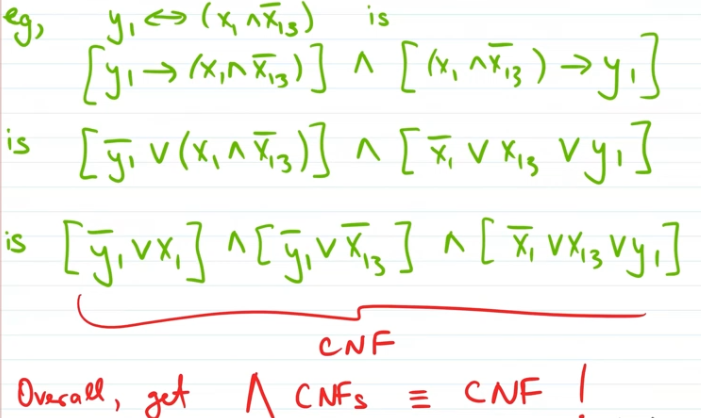 eg, y₁ ↔ (x₁ ∧ x̅₁₃) is
[y₁ → (x₁ ∧ x̅₁₃)] ∧ [(x₁ ∧ x̅₁₃) → y₁]
is [y̅₁ ∨ (x₁ ∧ x̅₁₃)] ∧ [x̅₁ ∨ x₁₃ ∨ y₁]
is [y̅₁ ∨ x₁] ∧ [y̅₁ ∨ x̅₁₃] ∧ [x̅₁ ∨ x₁₃ ∨ y₁]
CNF
Overall, get ∧ CNFs ≡ CNF !